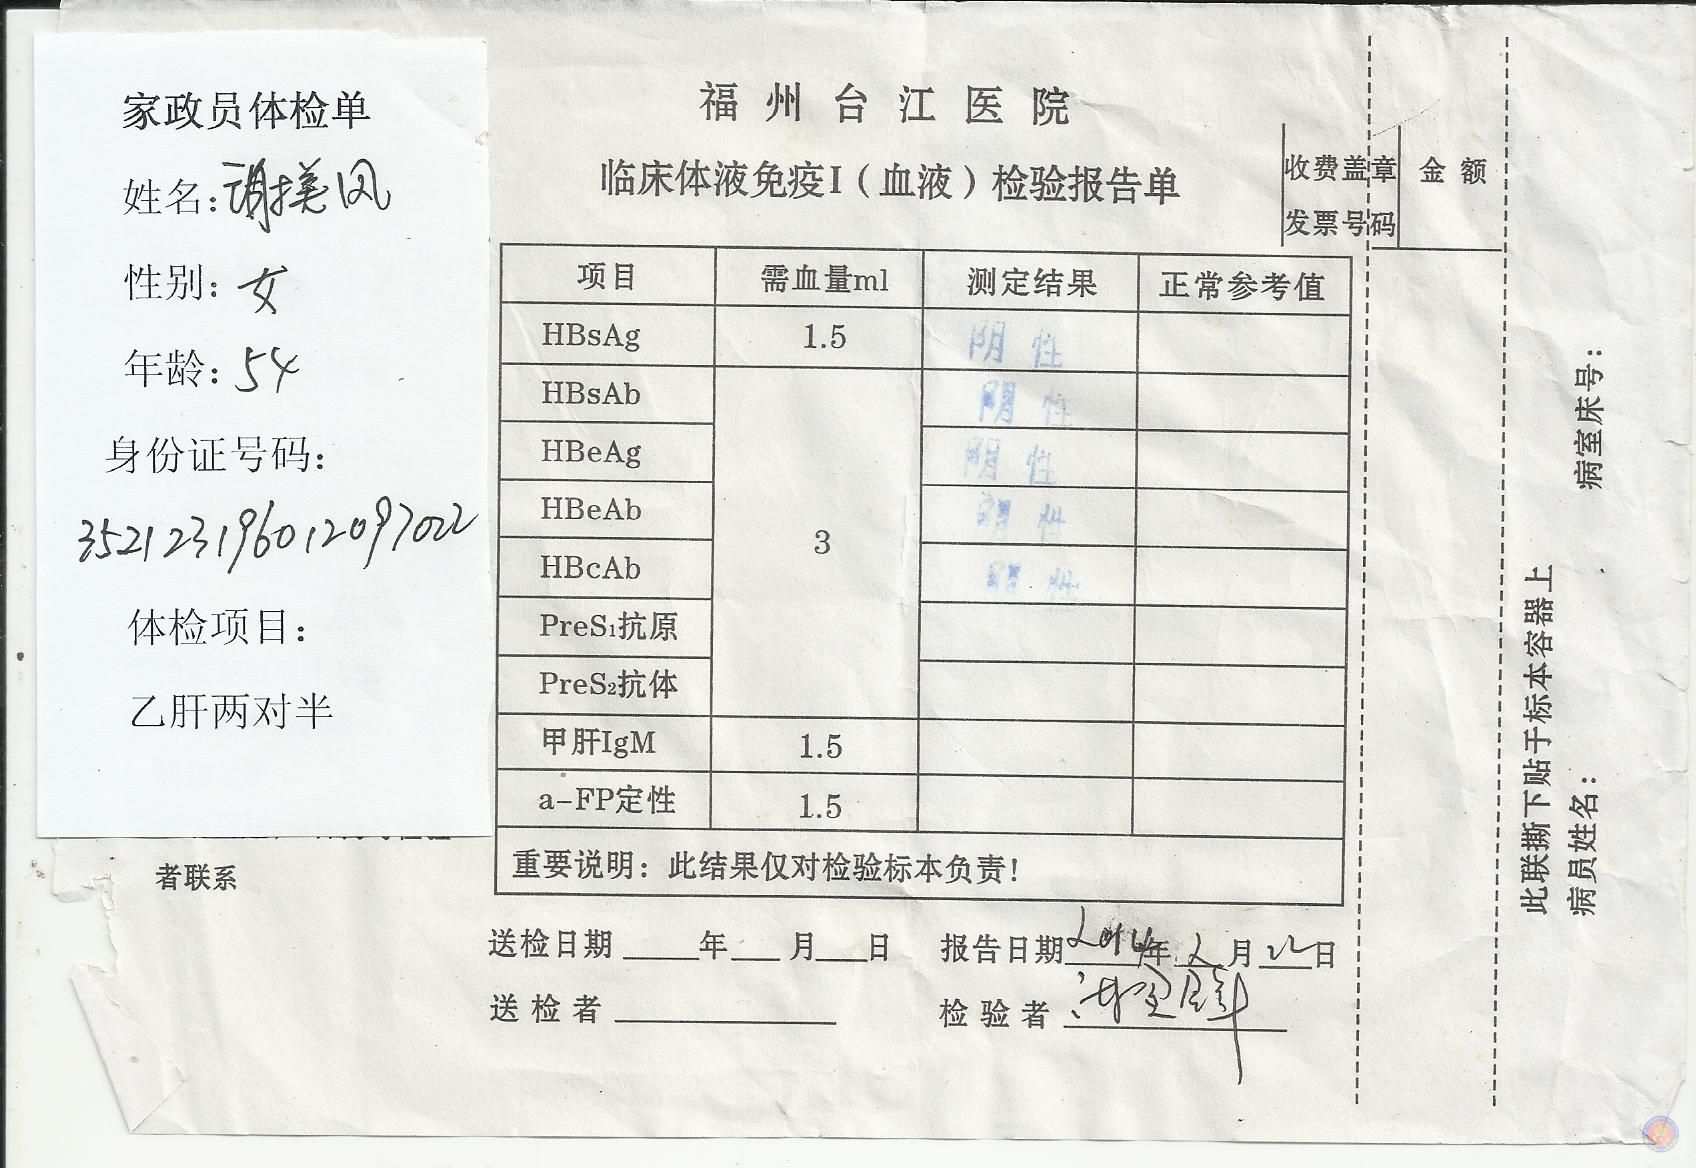 家政员体检单
姓名：谢美凤
性别：女
年龄：54
身份证号码：
352123196012097022
体检项目：
乙肝两对半
者联系
福州台江医院
临床体液免疫I（血液）检验报告单
收费盖章 金额
发票号码
项目 需血量ml 测定结果 正常参考值
HBsAg 1.5 阴性
HBsAb 阴性
HBeAg 阴性
HBeAb 阴性
3
HBcAb 阴性
PreS₁抗原
PreS₂抗体
甲肝IgM 1.5
a-FP定性 1.5
重要说明：此结果仅对检验标本负责！
送检日期 年 月 日 报告日期 2014年2月22日
送检者 检验者
此联撕下贴于标本容器上
病员姓名： 病室床号：